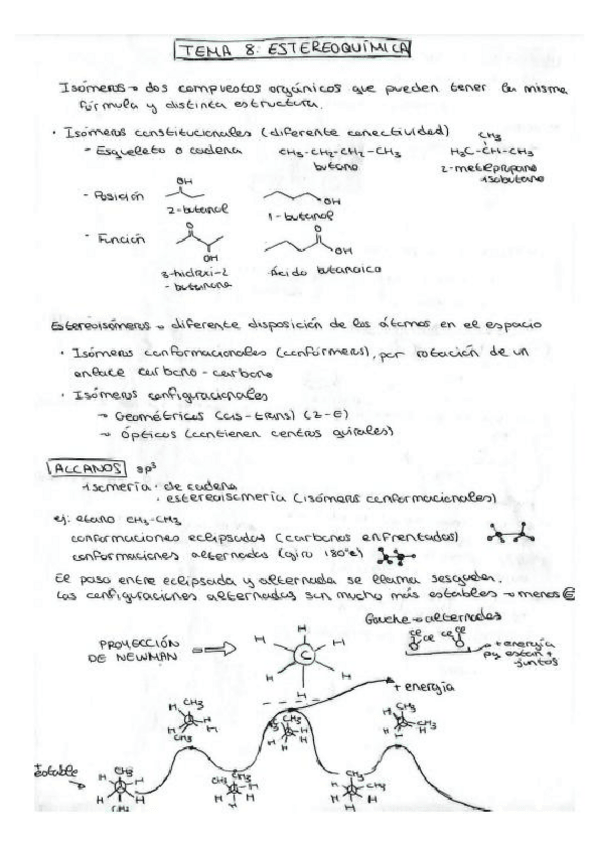 TEMA 8: ESTEREOQUÍMICA
Isómeros → dos compuestos orgánicos que pueden tener la misma
fórmula y distinta estructura.
· Isómeros constitucionales (diferente conectividad)
- Esqueleto o cadena CH3-CH2-CH2-CH3 H3C-CH-CH3
CH3
butano 2-metilpropano
isobutano
- Posición OH OH
2-butanol 1-butanol
- Función O OH O OH
3-hidroxi-2 Ácido butanoico
- butanona
Estereoisómeros → diferente disposición de los átomos en el espacio
· Isómeros conformacionales (confórmeros), por rotación de un
enlace carbono-carbono
· Isómeros configuracionales
→ Geométricos (cis-trans) (Z-E)
→ Ópticos (contienen centros quirales)
ALCANOS sp3
isomería · de cadena
· estereoisomería (isómeros conformacionales)
ej: etano CH3-CH3
conformaciones eclipsadas (carbonos enfrentados)
conformaciones alternadas (giro 180º)
El paso entre eclipsada y alternada se llama sesgada.
Las configuraciones alternadas son mucho más estables → menos E
Gauche → alternadas
PROYECCIÓN
DE NEWMAN
H H H C H H H
→ + energía
pq están +
juntos
+ energía
CH3 H H H CH3
CH3 H H
CH3 H H CH3
Estable
CH3 H H H H
CH3 CH3 H H
CH3 H CH3 H H